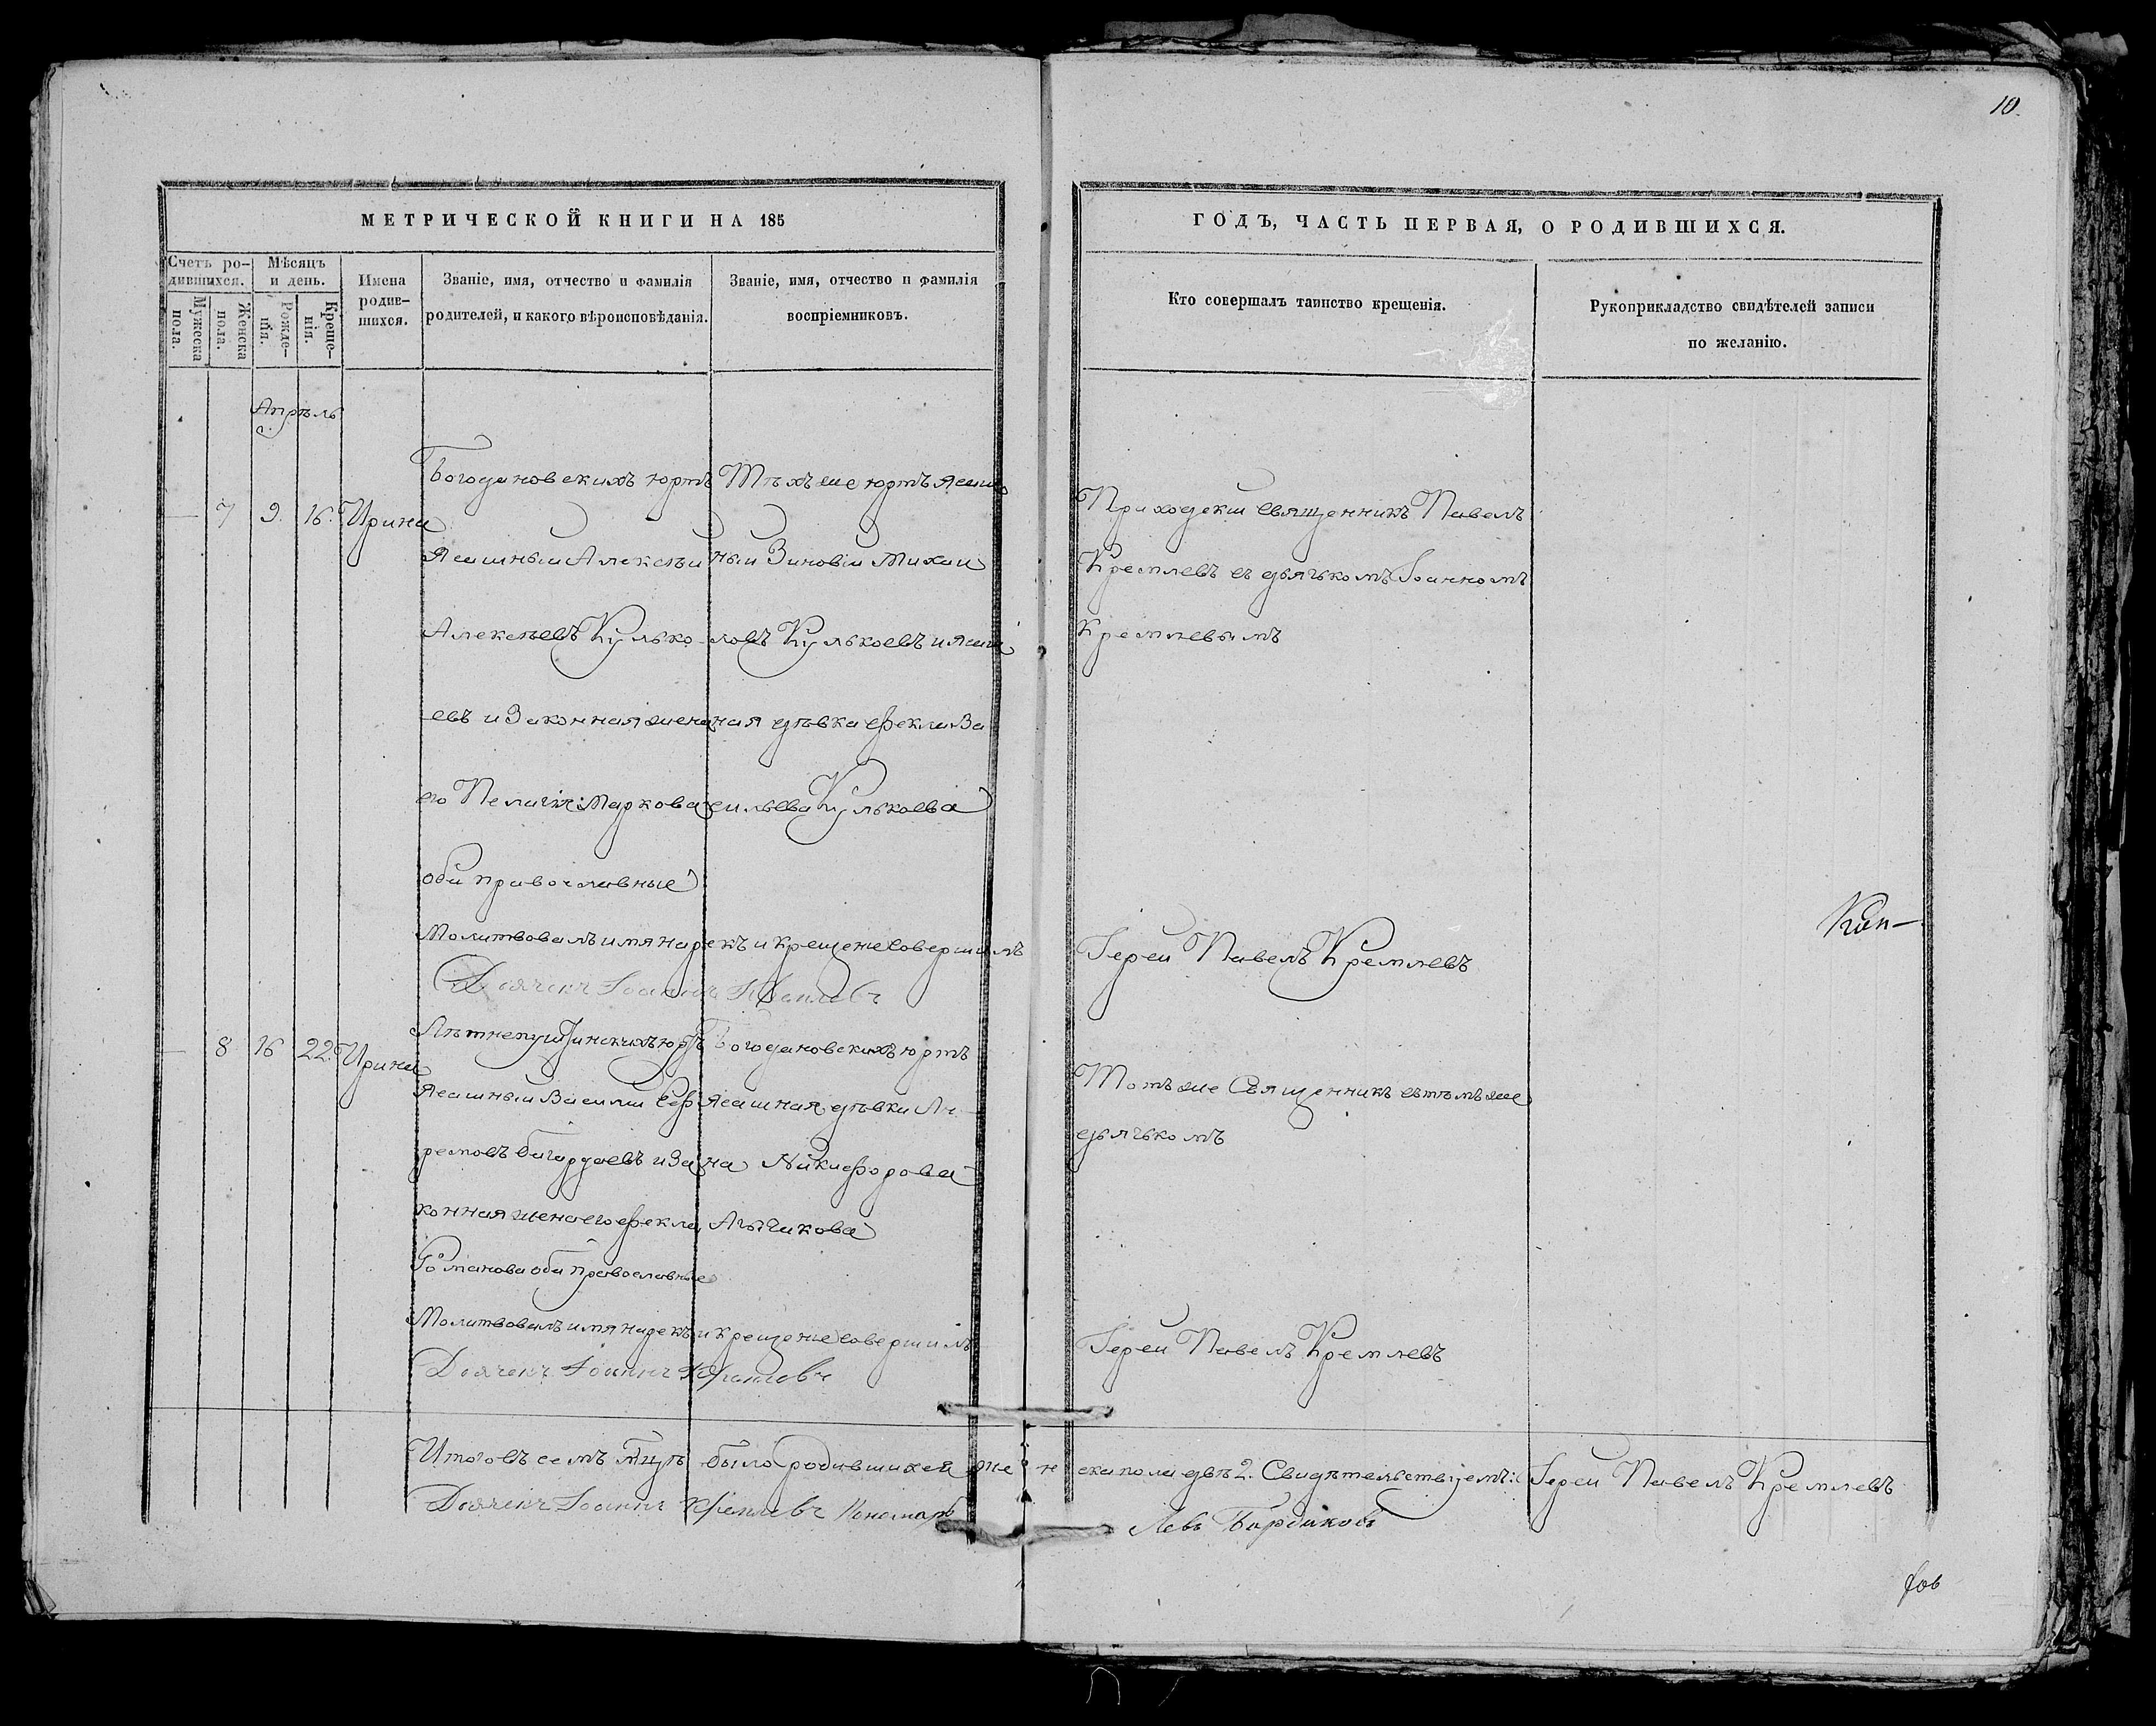 10.
МЕТРИЧЕСКОЙ КНИГИ НА 185
ГОДЪ, ЧАСТЬ ПЕРВАЯ, О РОДИВШИХСЯ.
Счетъ ро-
дившихся.
Мужеска
пола.
Женска
пола.
Мѣсяцъ
и день.
Рожде-
нія.
Креще-
нія.
Имена
родив-
шихся.
Званіе, имя, отчество и фамилія
родителей, и какого вѣроисповѣданія.
Званіе, имя, отчество и фамилія
воспріемниковъ.
Кто совершалъ таинство крещенія.
Рукоприкладство свидѣтелей записи
по желанію.
Апрѣль
7 9. 16. Ирина
Богодановскихъ юртъ
Ясашный Алексѣй
Алексѣевъ Кулько-
евъ и Законная жена
его Пелагія Маркова
оба православные
Тѣхъ же юртъ Ясаш
ный Зиновій Михаи
ловъ Кулькоевъ и Ясаш
ная дѣвка Фекла Ва
сильева Кулькоева
Приходскій священникъ Павелъ
Кремлевъ съ дьячькомъ Іоанномъ
Кремлевымъ
Молитвовалъ имя нарекъ и крещеніе совершилъ
Іерей Павелъ Кремлевъ
Дьячекъ Іоаннъ Кремлевъ
8 16 22. Ирина
юртъ
Ясашный Василій Еф
ремовъ и За
конная жена его Фекла
Романова оба православные
Богодановскихъ юртъ
Ясашная дѣвка Ан-
на Никифорова
Тотъ же Священникъ съ тѣмъ же
дьячькомъ
Молитвовалъ имя нарекъ и крещеніе совершилъ
Іерей Павелъ Кремлевъ
Дьячекъ Іоаннъ Кремлевъ
Итого въ семъ мцѣ было родившихся жен ска пола двѣ 2. Свидѣтельствуемъ: Іерей Павелъ Кремлевъ
Дьячекъ Іоаннъ Кремлевъ Пономарь Левъ